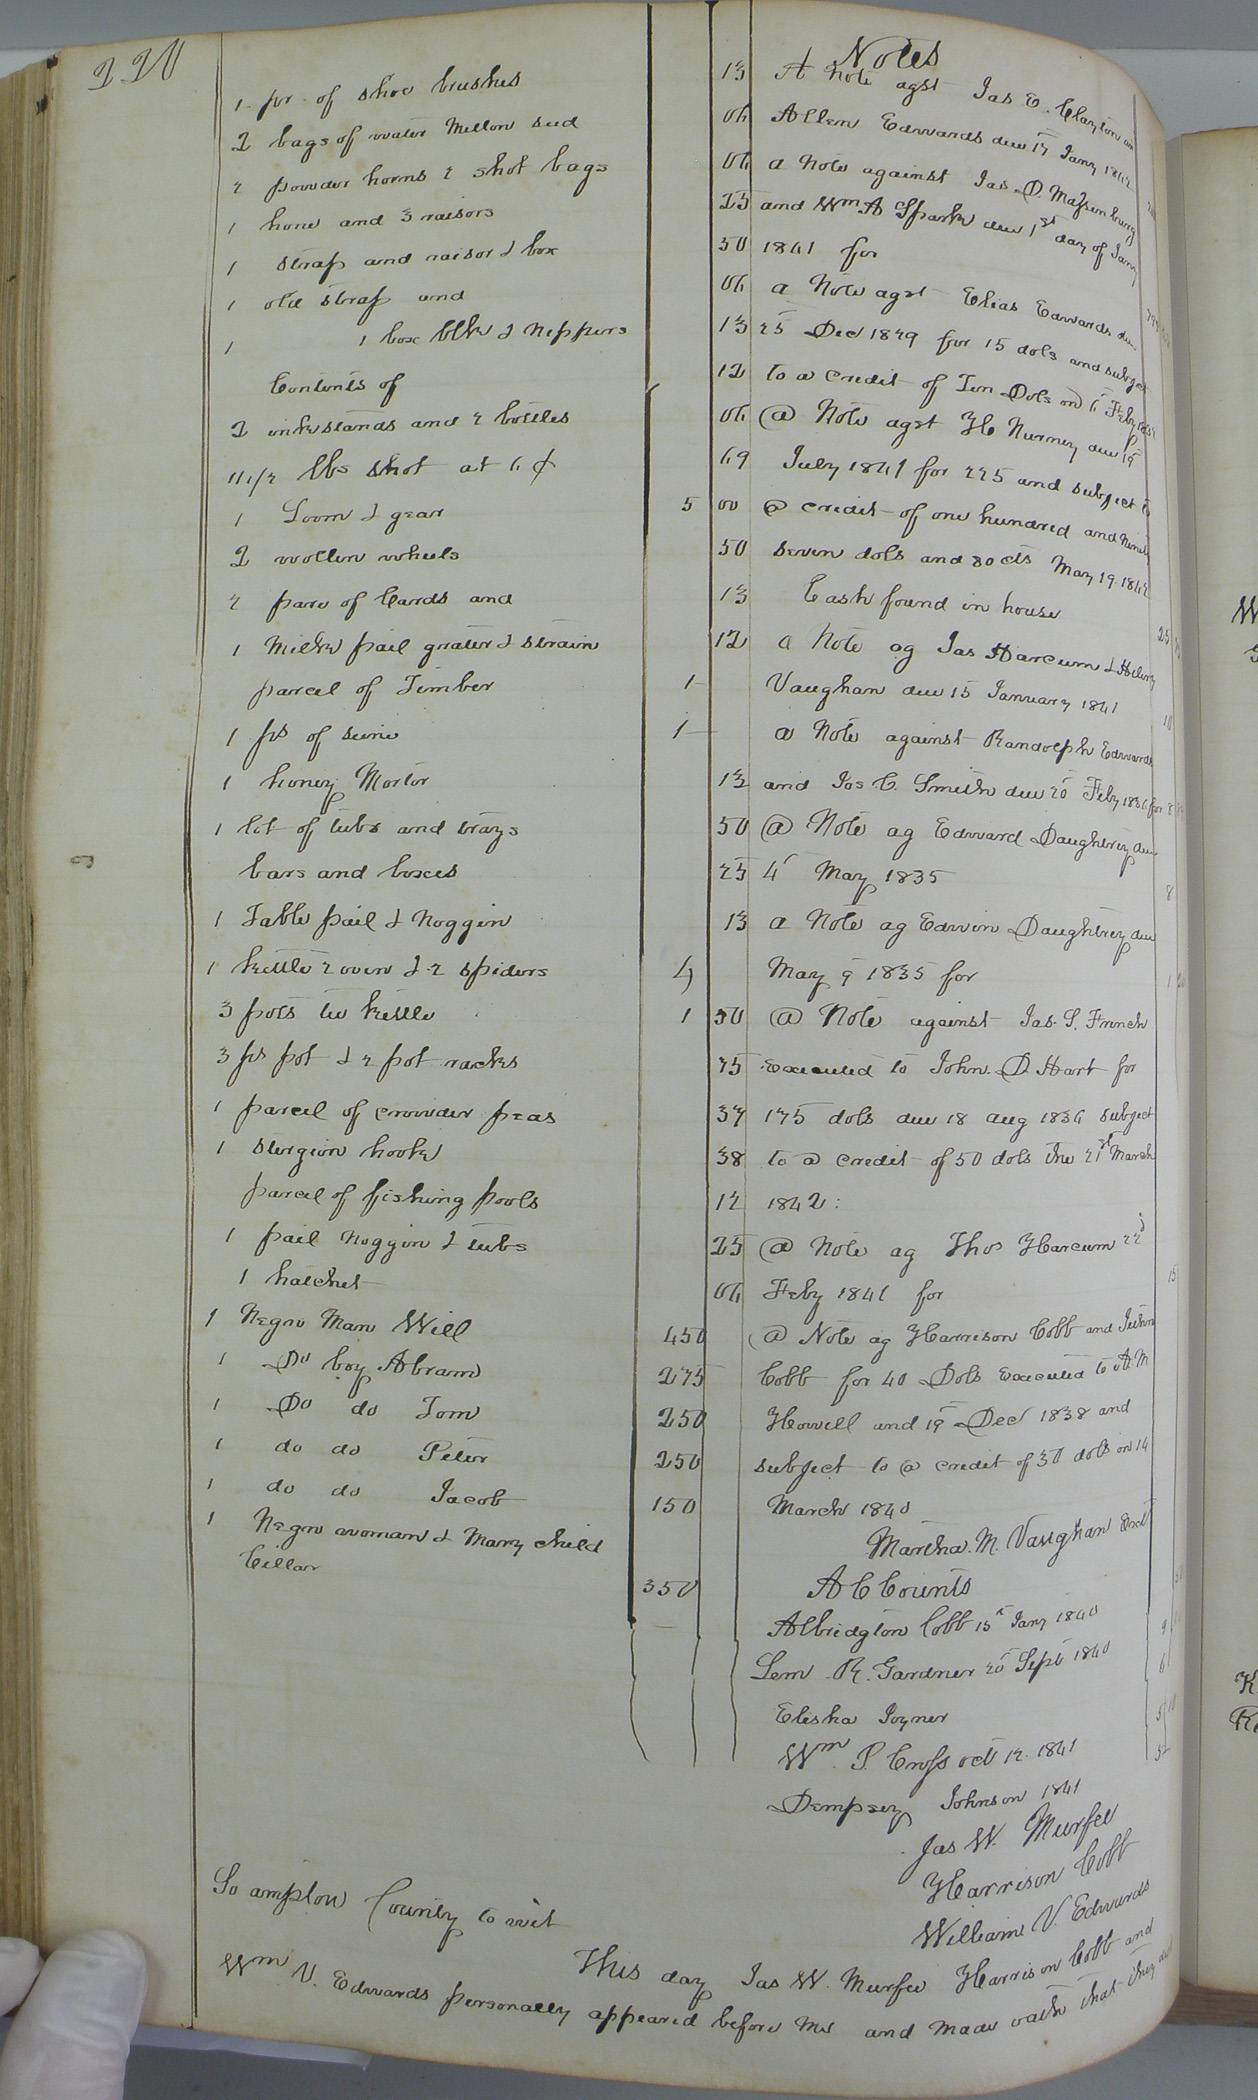 220
1 pr of shoe brushes 13
2 bags of water Mellon seed 06
2 powder horns 2 shot bags 06
1 hone and 3 raisors 25
1 strap and raisor & box 50
1 old strap and 06
1 1 box blk & Nippers 13
Contents of 12
2 inkstands and 2 bottles 06
11 1/2 lbs shot at 6 ¢ 69
1 Loom & gear 5 00
2 wollen wheels 50
2 pare of Cards and 13
1 Milk pail grater & strain 12
parcel of Timber 1
1 ps of seine 1
1 honey Mortor 12
1 lot of tubs and trays 50
bars and boxes 25
1 Table pail & Noggin 13
1 kettle 2 oven & 2 spiders 4
3 pots tea kettle 1 50
3 ps pot & 2 pot racks 75
1 parcel of crowder peas 37
1 sturgion hook 38
parcel of fishing pools 12
1 pail noggin & tubs 25
1 hatchet 06
1 Negro Man Will 450
1 Do boy Abram 275
1 Do do Tom 250
1 do do Peter 250
1 do do Jacob 150
1 Negro woman & Mary child
Cillar 350
Notes
A Note agst Jas E. Clayton
Allen Edwards due 17 Jany 1842
a Note against Jas D. Massenburg
and Wm A Spark due 1st day of Jany
1841 for
a Note agst Elias Edwards due
25 Dec 1829 for 15 dols and subject
to a credit of Ten Dols on 6 Feby
a Note agst H Nurney due 19
July 1841 for 225 and subject to
a credit of one hundred and Ninety
seven dols and 80 cts May 19. 1842
Cash found in house 25
a Note ag Jas Harcum &
Vaughan due 15 January 1841 10
a Note against Randolph Edwards
and Jos C. Smith due 20 Feby 1836 for 8
a Note ag Edward Daughtrey due
4 May 1835 8
a Note ag Edwin Daughtrey due
May 9 1835 for 1
a Note against Jas. S. French
Executed to John. D. Hart for
175 dols due 18 aug 1836 subject
to a credit of 50 dols the 21st March
1842:
a Note ag Thos Harcum 22d
Feby 1841 for 15
a Note ag Harrison Cobb and
Cobb for 40 Dols Executed to A. M
Howell and 19 Dec 1838 and
subject to a credit of 30 dols on 14
March 1840
Martha. M. Vaughan
ACCounts
Albridgton Cobb 15 Jany 1840 9
Lem R. Gardner 20 Sept 1840 6
Elisha Joyner 5
Wm P. Cross oct 12. 1841
Dempsey Johnson 1841
Jas W. Murfee
Harrison Cobb
William V. Edwards
So ampton County to wit
This day Jas W. Murfee Harrison Cobb and
Wm V. Edwards personally appeared before me and made oath that they